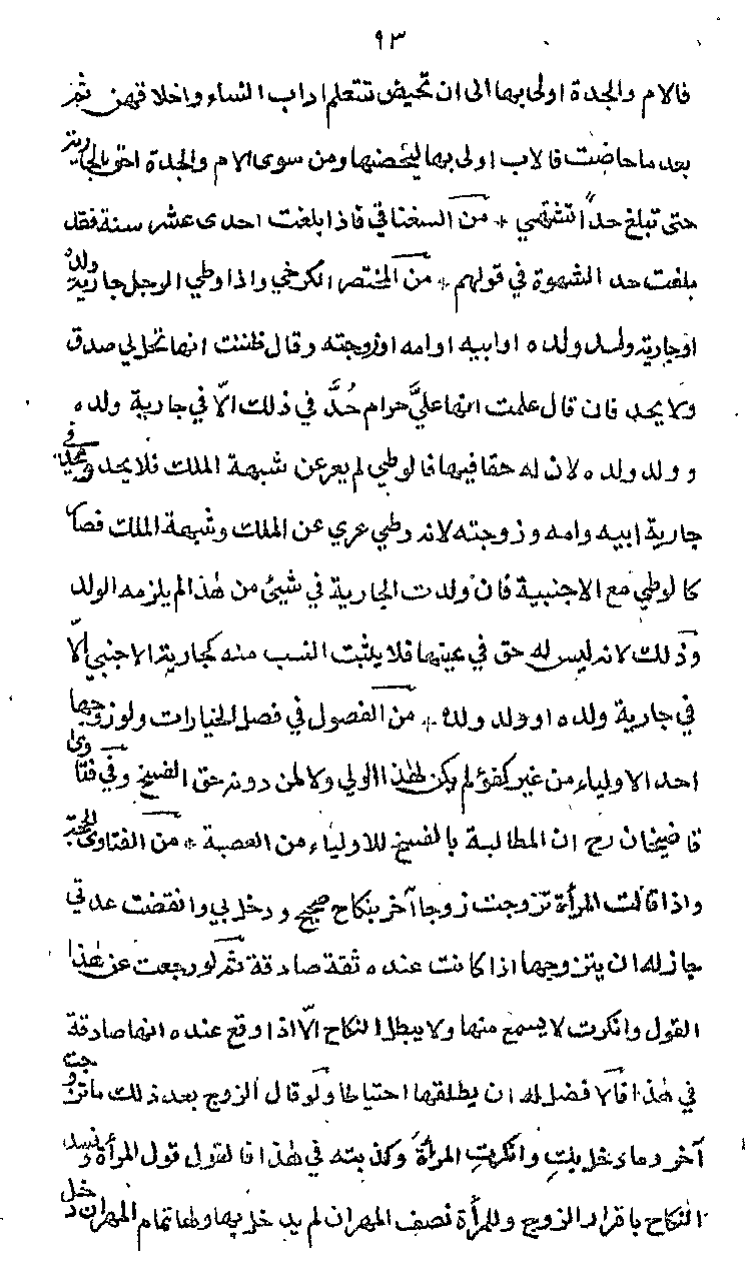 ٩٣
فالام والجدة اولى بها الى ان تحيض تتعلم اداب النساء واخلاقهن ثم
بعد ما حاضت فالاب اولى بها ليحصنها ومن سوى الام والجدة احق بالجارية
حتى تبلغ حداً تشتهي * من السغناقي فاذا بلغت احدى عشر سنة فقد
بلغت حد الشهوة في قولهم * من المختصر الكرخي واذا وطي الرجل جارية ولده
او جارية ولد ولده او ابيه او امه او زوجته وقال ظننت انها تحل لي صدق
ولا يحد فان قال علمت انها عليَّ حرام حُدَّ في ذلك الّا في جارية ولده
وولد ولده لان له حقا فيها فالوطي لم يعر عن شبهة الملك فلا يحد ويحد في
جارية ابيه وامه وزوجته لانه وطي عري عن الملك وشبهة الملك فصار
كالوطي مع الاجنبية فان ولدت الجارية في شيئ من هذا لم يلزمه الولد
وذلك لانه ليس له حق في عينها فلا يثبت النسب منه كجارية الاجنبي الّا
في جارية ولده او ولد ولده * من الفصول في فصل الخيارات ولو زوجها
احد الاولياء من غير كفؤ لم يكن لهذا الولي ولا لمن دونه حق الفسخ وفي فتاوى
قاضيخان رح ان المطالبة بالفسخ للاولياء من العصبة * من الفتاوى الحجة
واذا قالت المرأة تزوجت زوجا آخر بنكاح صحيح ودخل بي وانقضت عدتي
جاز له ان يتزوجها اذا كانت عنده ثقة صادقة ثم لو رجعت عن هذا
القول وانكرت لا يسمع منها ولا يبطل النكاح الّا اذا وقع عنده انها صادقة
في هذا فالافضل له ان يطلقها احتياطا ولو قال الزوج بعد ذلك ما تزوجت
آخر وما دخل بكِ وانكرت المرأة وكذبته في هذا فالقول قول المرأة ويفسد
النكاح باقرار الزوج وللمرأة نصف المهر ان لم يدخل بها ولها تمام المهر ان دخل